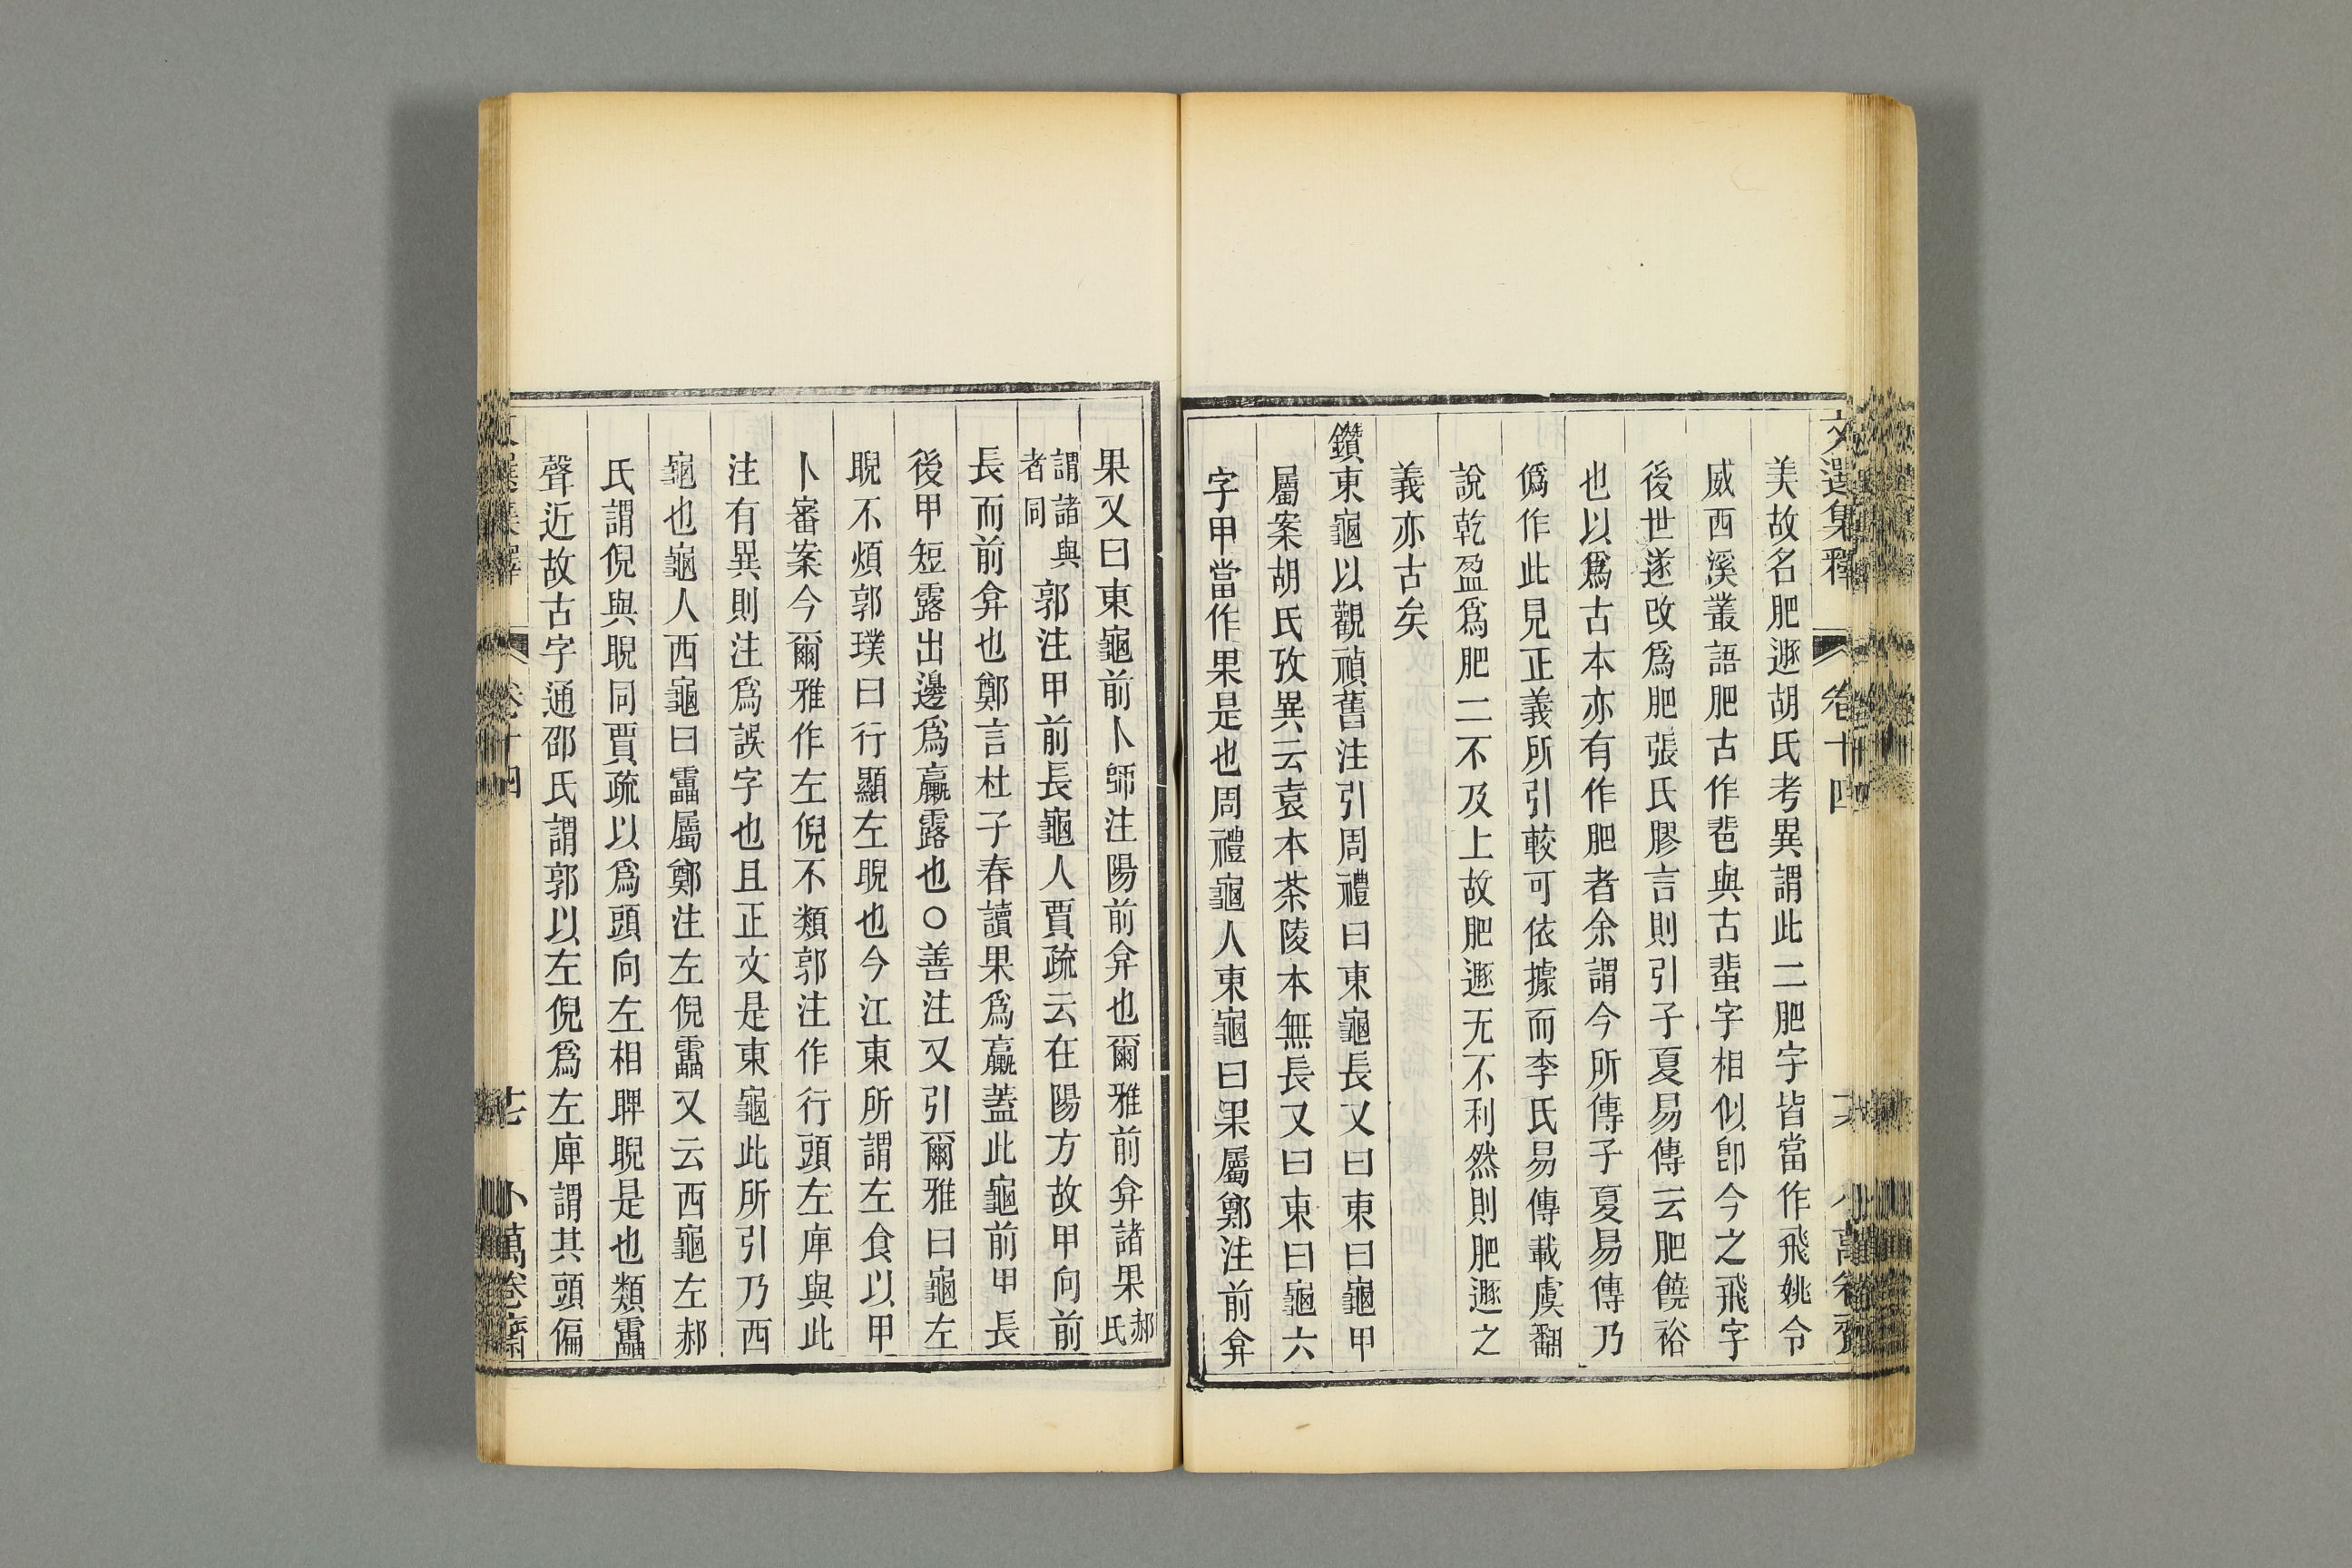 文選集釋 卷十四
美故名肥遯胡氏考異謂此二肥字皆當作飛姚令
威西溪叢語肥古作𦫼與古蜚字相似卽今之飛字
後世遂改爲肥張氏膠言則引子夏易傳云肥饒裕
也以爲古本亦有作肥者余謂今所傳子夏易傳乃
僞作此見正義所引較可依據而李氏易傳載虞翻
說乾盈爲肥二不及上故肥遯无不利然則肥遯之
義亦古矣
鑽東龜以觀禎舊注引周禮曰東龜長又曰東曰龜甲
屬案胡氏攷異云袁本茶陵本無長又曰東曰龜六
字甲當作果是也周禮龜人東龜曰果屬鄭注前弇
果又曰東龜前卜師注陽前弇也爾雅前弇諸果郝氏
謂諸與者同郭注甲前長龜人賈疏云在陽方故甲向前
長而前弇也鄭言杜子春讀果爲臝蓋此龜前甲長
後甲短露出邊爲臝露也○善注又引爾雅曰龜左
睨不煩郭璞曰行顯左睨也今江東所謂左食以甲
卜審案今爾雅作左倪不類郭注作行頭左庳與此
注有異則注爲誤字也且正文是東龜此所引乃西
龜也龜人西龜曰靁屬鄭注左倪靁又云西龜左郝
氏謂倪與睨同賈疏以爲頭向左相睥睨是也類靁
聲近故古字通邵氏謂郭以左倪爲左庳謂其頭偏
卷十四